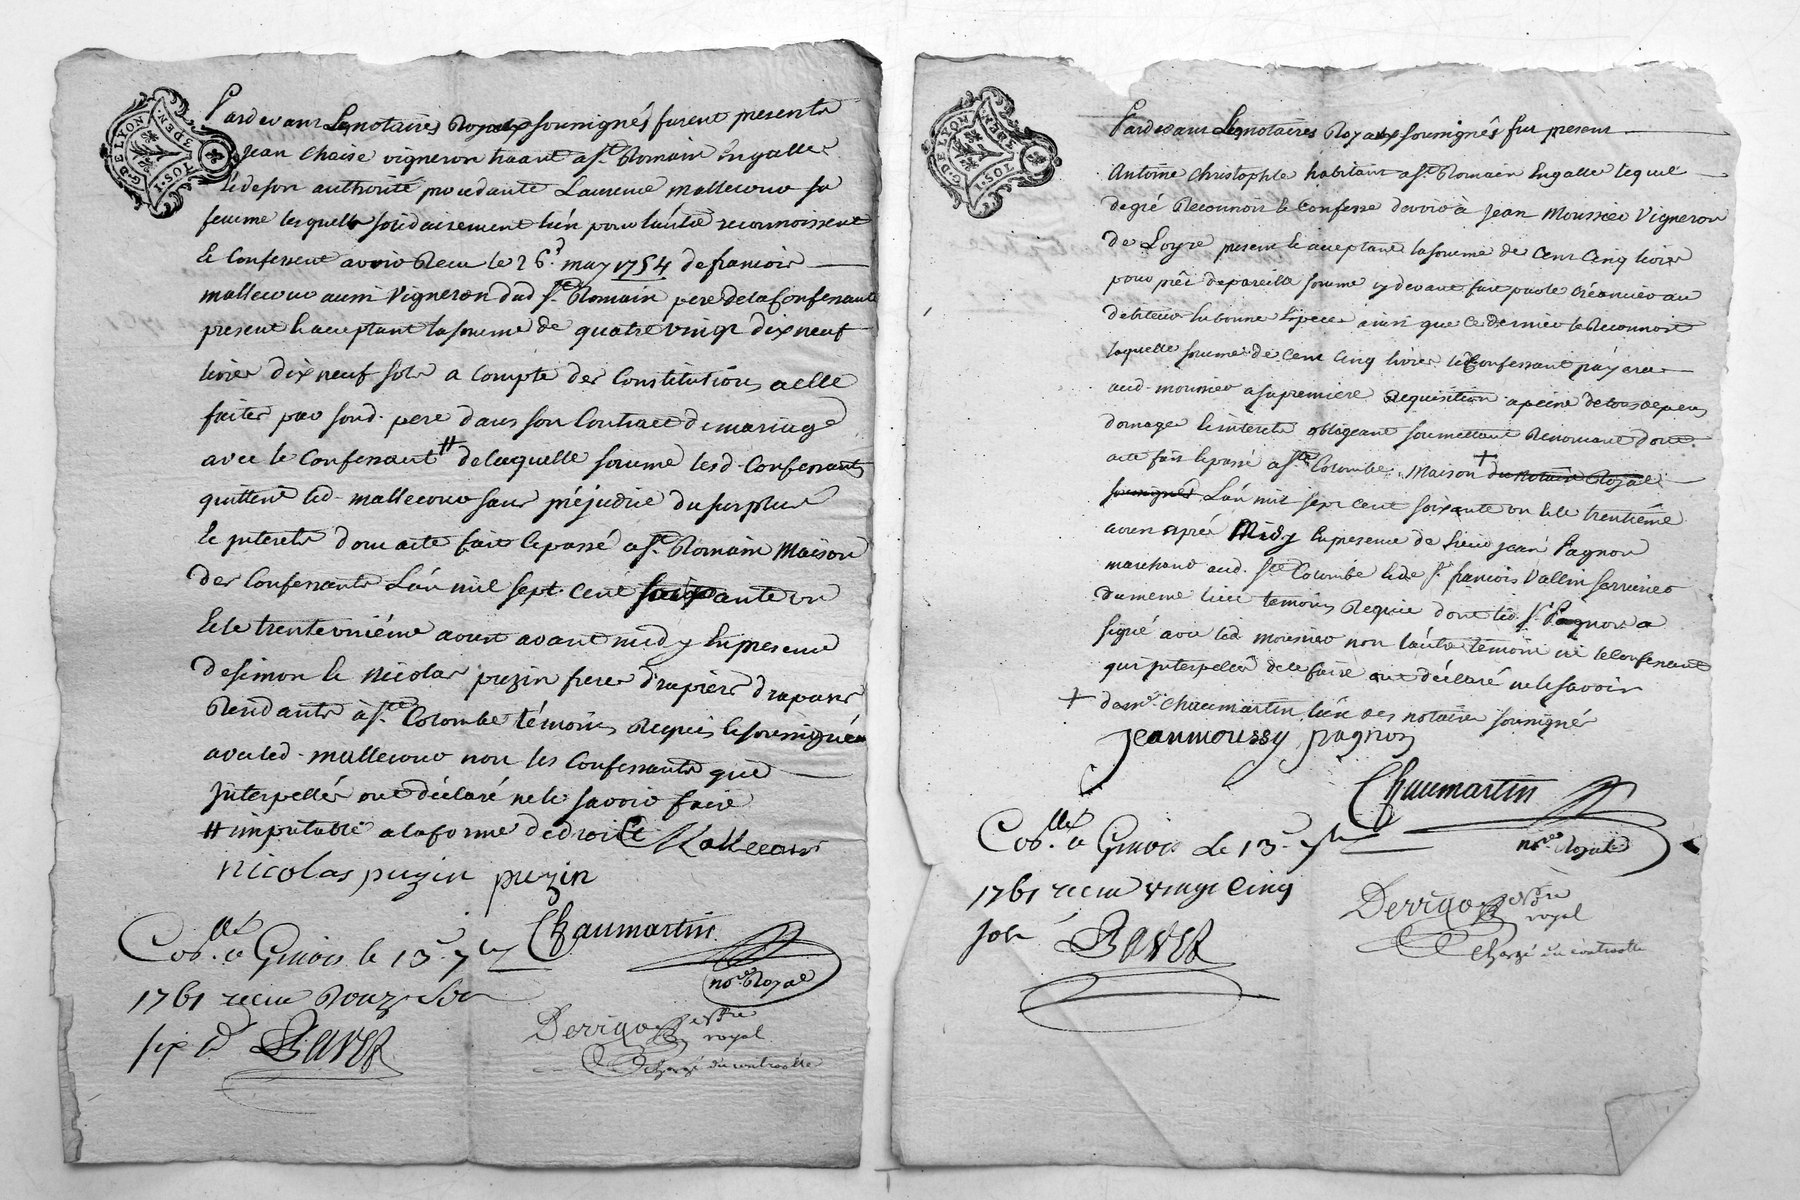 G. DE LYON
TOS. 1.
3. DEN.
Pardevant Les notaires Royaux soussignés furent presents
Jean Chaise vigneron hãant a St. Romain Engalle
& de son authorité procedante Laurence mallecour sa
femme lesquels solidairement lún pour láutre reconnoissent
& Confessent avoir Recu le 26.e may 1754 de francois
mallecour aussi Vigneron dud St. Romain pere de la Confessante
present & acceptant la somme de quatre vingt dix neuf
livres dix neuf sols a compte des Constitutions a elle
faites par sond. pere dans son Contract de mariage
avec le Confessant # de laquelle somme lesd. Confessants
quittent led. mallecour sans préjudice du surplus
& interets dont acte fait & passé a St. Romain Maison
des Confessants Lán mil sept cent soixante un
& le trente uniéme aoust avant midy En presence
de simon & Nicolas puzin freres drapiers drapans
Residants à Ste. Colombe témoins Requis & soussignés
avec led. mallecour non les Confessants que
Interpellés ont déclaré ne le savoir faire
# imputable a la forme de droit Mallecour
Nicolas puzin puzin
Chaumartin
nore. Royal
Cob.llé a Givors le 13.e 7bre
1761 recu Douze sols
six d. Bavet
Derrigo
royal
chargé du controolle
G. DE LYON
TOS. 1.
3. DEN.
Pardevant Les notaires Royaux soussignés fut present
Antoine Christophle habitant a St. Romain Engalle lequel
de gré Reconnois & Confesse devoir à Jean Moussier Vigneron
de Loyre present & acceptant la somme de Cent Cinq livres
pour prêt de pareille somme cy devant fait par le Créancier au
debiteur En bonne Espece ainsi que ce dernier le Reconnoit
laquelle somme de Cent Cinq livres led Confessant páyera
aud. moussier a sa premiere Requisition a peine de tous depens
domages & interets obligeant soumettant Renoncant dont
acte fait & passé a Ste. Colombe Maison + du Notaire Royal
soussignés Lán mil sept cent soixante un & le trentiéme
aoust aprés Midy En presence de sieur jean Pagnon
marchand aud. Ste Colombe & de sr. francois Vallin serrurier
du meme lieu temoins Requis dont led. sr. Pagnon a
signé avec led. moussier non láutre témoin ni le Confessant
qui Interpellés de le faire ont déclaré ne le savoir
+ de mre. Chaumartin lún des notaires soussignés
jean moussy pagnon
Chaumartin
nore. Royal
Cob.llé a Givors Le 13.e 7bre
1761 recu vingt Cinq
sols Bavet
Derrigo
royal
chargé du controolle